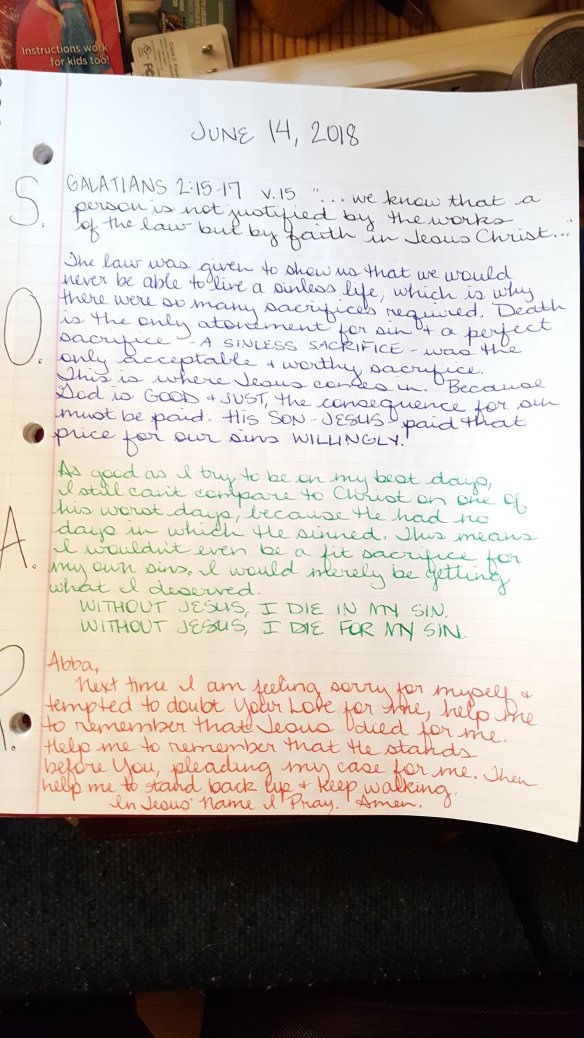 Instructions work
for kids too!
JUNE 14, 2018
S.
GALATIANS 2:15-17 v.15 "...we know that a
person is not justified by the works
of the law but by faith in Jesus Christ..."
O.
The law was given to show us that we would
never be able to live a sinless life, which is why
there were so many sacrifices required. Death
is the only atonement for sin + a perfect
sacrifice - A SINLESS SACRIFICE - was the
only acceptable + worthy sacrifice.
This is where Jesus comes in. Because
God is GOOD + JUST, the consequence for sin
must be paid. HIS SON - JESUS - paid that
price for our sins WILLINGLY.
A.
As good as I try to be on my best days,
I still can't compare to Christ on one of
his worst days, because He had no
days in which He sinned. This means
I wouldn't even be a fit sacrifice for
my own sins, I would merely be getting
what I deserved.
WITHOUT JESUS, I DIE IN MY SIN.
WITHOUT JESUS, I DIE FOR MY SIN.
P.
Abba,
Next time I am feeling sorry for myself +
tempted to doubt Your Love for me, help me
to remember that Jesus died for me.
Help me to remember that He stands
before You, pleading my case for me. Then
help me to stand back up + keep walking.
In Jesus' Name I Pray. Amen.